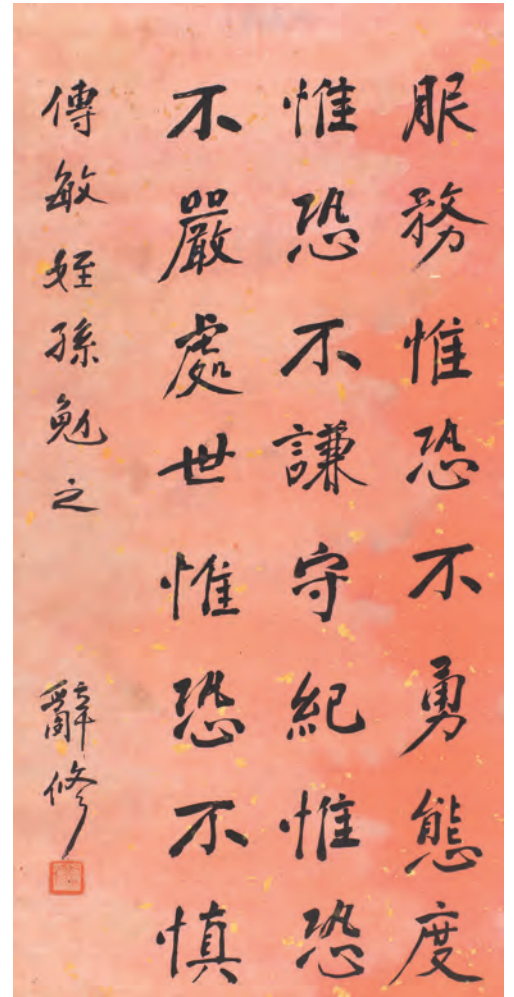 服務惟恐不勇態度
惟恐不謙守紀惟恐
不嚴處世惟恐不慎
傳敏姪孫勉之
辭修